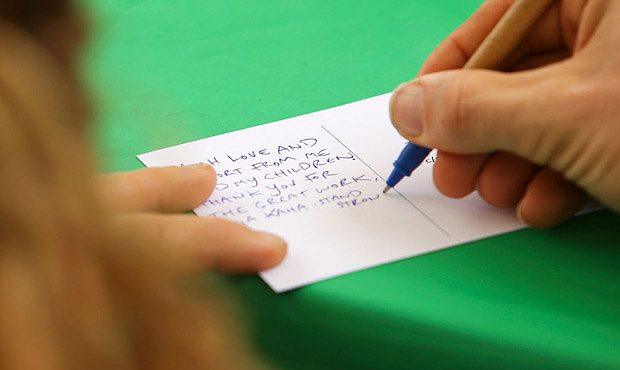 LOVE AND
FROM ME
MY CHILDREN.
THANK YOU FOR
THE GREAT WORK,
KAHA - STAND
STRON